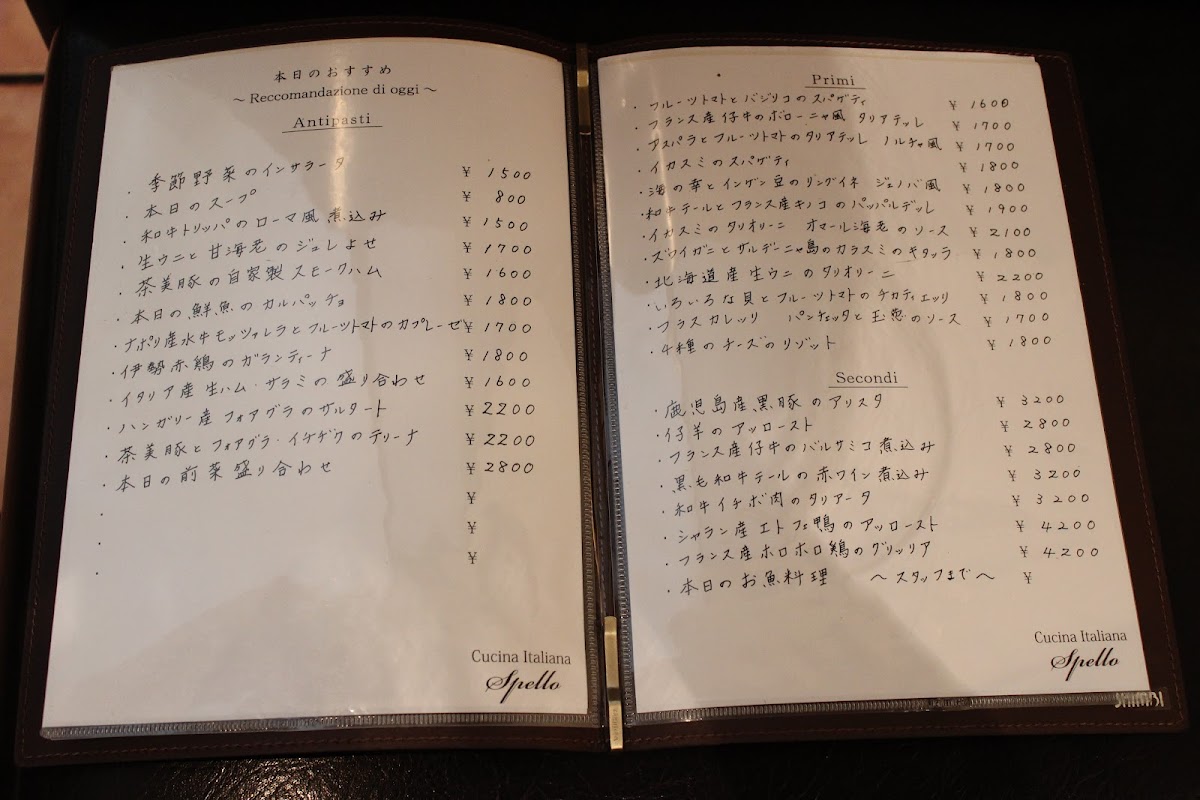 本日のおすすめ
～ Reccomandazione di oggi ～
Antipasti
・季節野菜のインサラータ ¥ 1500
・本日のスープ ¥ 800
・和牛トリッパのローマ風煮込み ¥ 1500
・生ウニと甘海老のジュレよせ ¥ 1700
・茶美豚の自家製スモークハム ¥ 1600
・本日の鮮魚のカルパッチョ ¥ 1800
・ナポリ産水牛モッツァレラとフルーツトマトのカプレーゼ ¥ 1700
・伊勢赤鶏のガランティーナ ¥ 1800
・イタリア産生ハム・サラミの盛り合わせ ¥ 1600
・ハンガリー産フォアグラのザルタート ¥ 2200
・茶美豚とフォアグラ・イチヂクのテリーナ ¥ 2200
・本日の前菜盛り合わせ ¥ 2800
・ ¥
・ ¥
・ ¥
Cucina Italiana
Spello
Primi
・フルーツトマトとバジリコのスパゲティ ¥ 1600
・フランス産仔牛のボローニャ風 タリアテッレ ¥ 1700
・アスパラとフルーツトマトのタリアテッレ ノルチャ風 ¥ 1700
・イカスミのスパゲティ ¥ 1800
・海の幸とインゲン豆のリングイネ ジェノバ風 ¥ 1800
・和牛テールとフランス産キノコのパッパルデッレ ¥ 1900
・イカスミのタリオリーニ オマール海老のソース ¥ 2100
・ズワイガニとサルデーニャ島のカラスミのキタッラ ¥ 1800
・北海道産生ウニのタリオリーニ ¥ 2200
・いろいろな貝とフルーツトマトのチカティエッリ ¥ 1800
・フラスカレッリ パンチェッタと玉葱のソース ¥ 1700
・4種のチーズのリゾット ¥ 1800
Secondi
・鹿児島産黒豚のアリスタ ¥ 3200
・仔羊のアッロースト ¥ 2800
・フランス産仔牛のバルサミコ煮込み ¥ 2800
・黒毛和牛テールの赤ワイン煮込み ¥ 3200
・和牛イチボ肉のタリアータ ¥ 3200
・シャラン産エトフェ鴨のアッロースト ¥ 4200
・フランス産ホロホロ鶏のグリッリア ¥ 4200
・本日のお魚料理 ～スタッフまで～ ¥
Cucina Italiana
Spello
SHIMBI